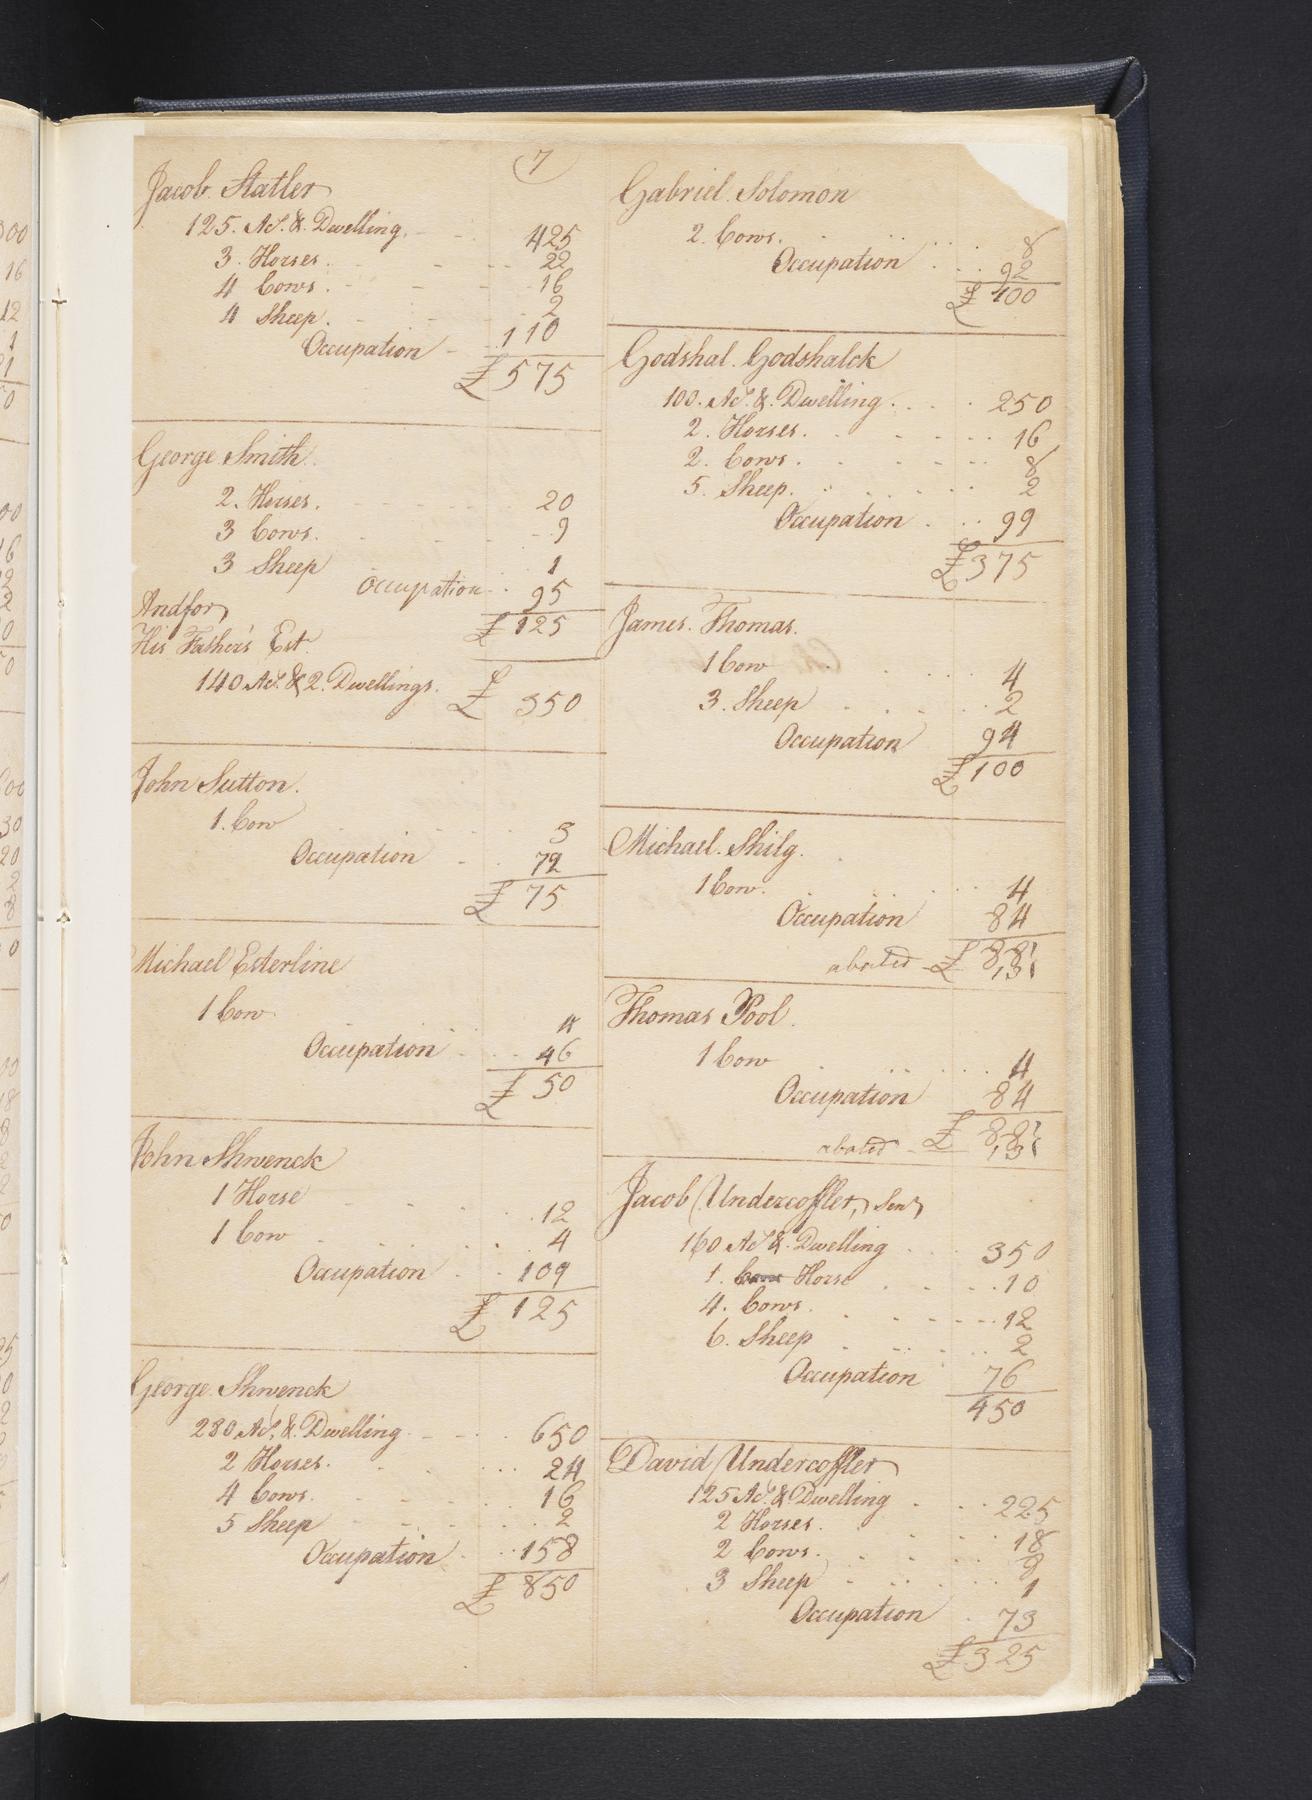 7
Jacob Statler
125. Acs. & Dwelling. 425
3. Horses. 22
4 Cows. 16
4 Sheep. 2
Occupation 110
£ 575
George Smith.
2. Horses. 20
3 Cows. 9
3 Sheep 1
Occupation 95
£ 125
And for
His Father's Est.
140 Acs. & 2. Dwellings. £ 350
John Sutton.
1. Cow 3
Occupation 72
£ 75
Michael Esterline
1 Cow 4
Occupation 46
£ 50
John Shwenck
1 Horse 12
1 Cow 4
Occupation 109
£ 125
George Shwenck
280 Acs. & Dwelling 650
2 Horses. 24
4 Cows. 16
5 Sheep 2
Occupation 158
£ 850
Gabriel Solomon
2. Cows. 8
Occupation 92
£ 100
Godshal. Godshalck
100. Acs. & Dwelling 250
2. Horses. 16
2. Cows. 8
5. Sheep. 2
Occupation 99
£ 375
James. Thomas.
1 Cow 4
3. Sheep 2
Occupation 94
£ 100
Michael. Shilg.
1 Cow. 4
Occupation 84
£ 88
abated
Thomas Pool.
1 Cow 4
Occupation 84
£ 88
abated
Jacob Undercoffler, Senr
160 Acs. & Dwelling 350
1. Cows Horse 10
4. Cows. 12
6. Sheep 2
Occupation 76
450
David Undercoffler
125 Acs. & Dwelling 225
2 Horses. 18
2 Cows. 8
3 Sheep 1
Occupation 73
£ 325